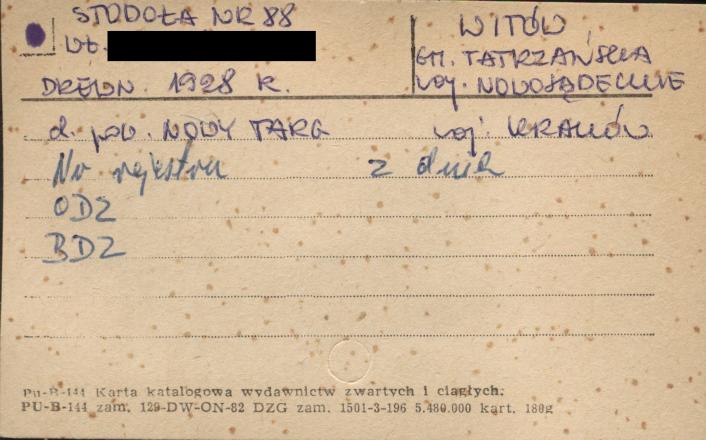 STODOŁA NR 88
WŁ.
DREWN. 1928 R.
WITÓW,
GM. TATRZAŃSKA
woj. NOWOSĄDECKIE
d. pow. NOWY TARG woj. KRAKÓW
Nr rejestru z dnia
ODZ
BDZ
PU-B-144 Karta katalogowa wydawnictw zwartych i ciągłych.
PU-B-144 zam. 129-DW-ON-82 DZG zam. 1501-3-196 5.480.000 kart. 180g